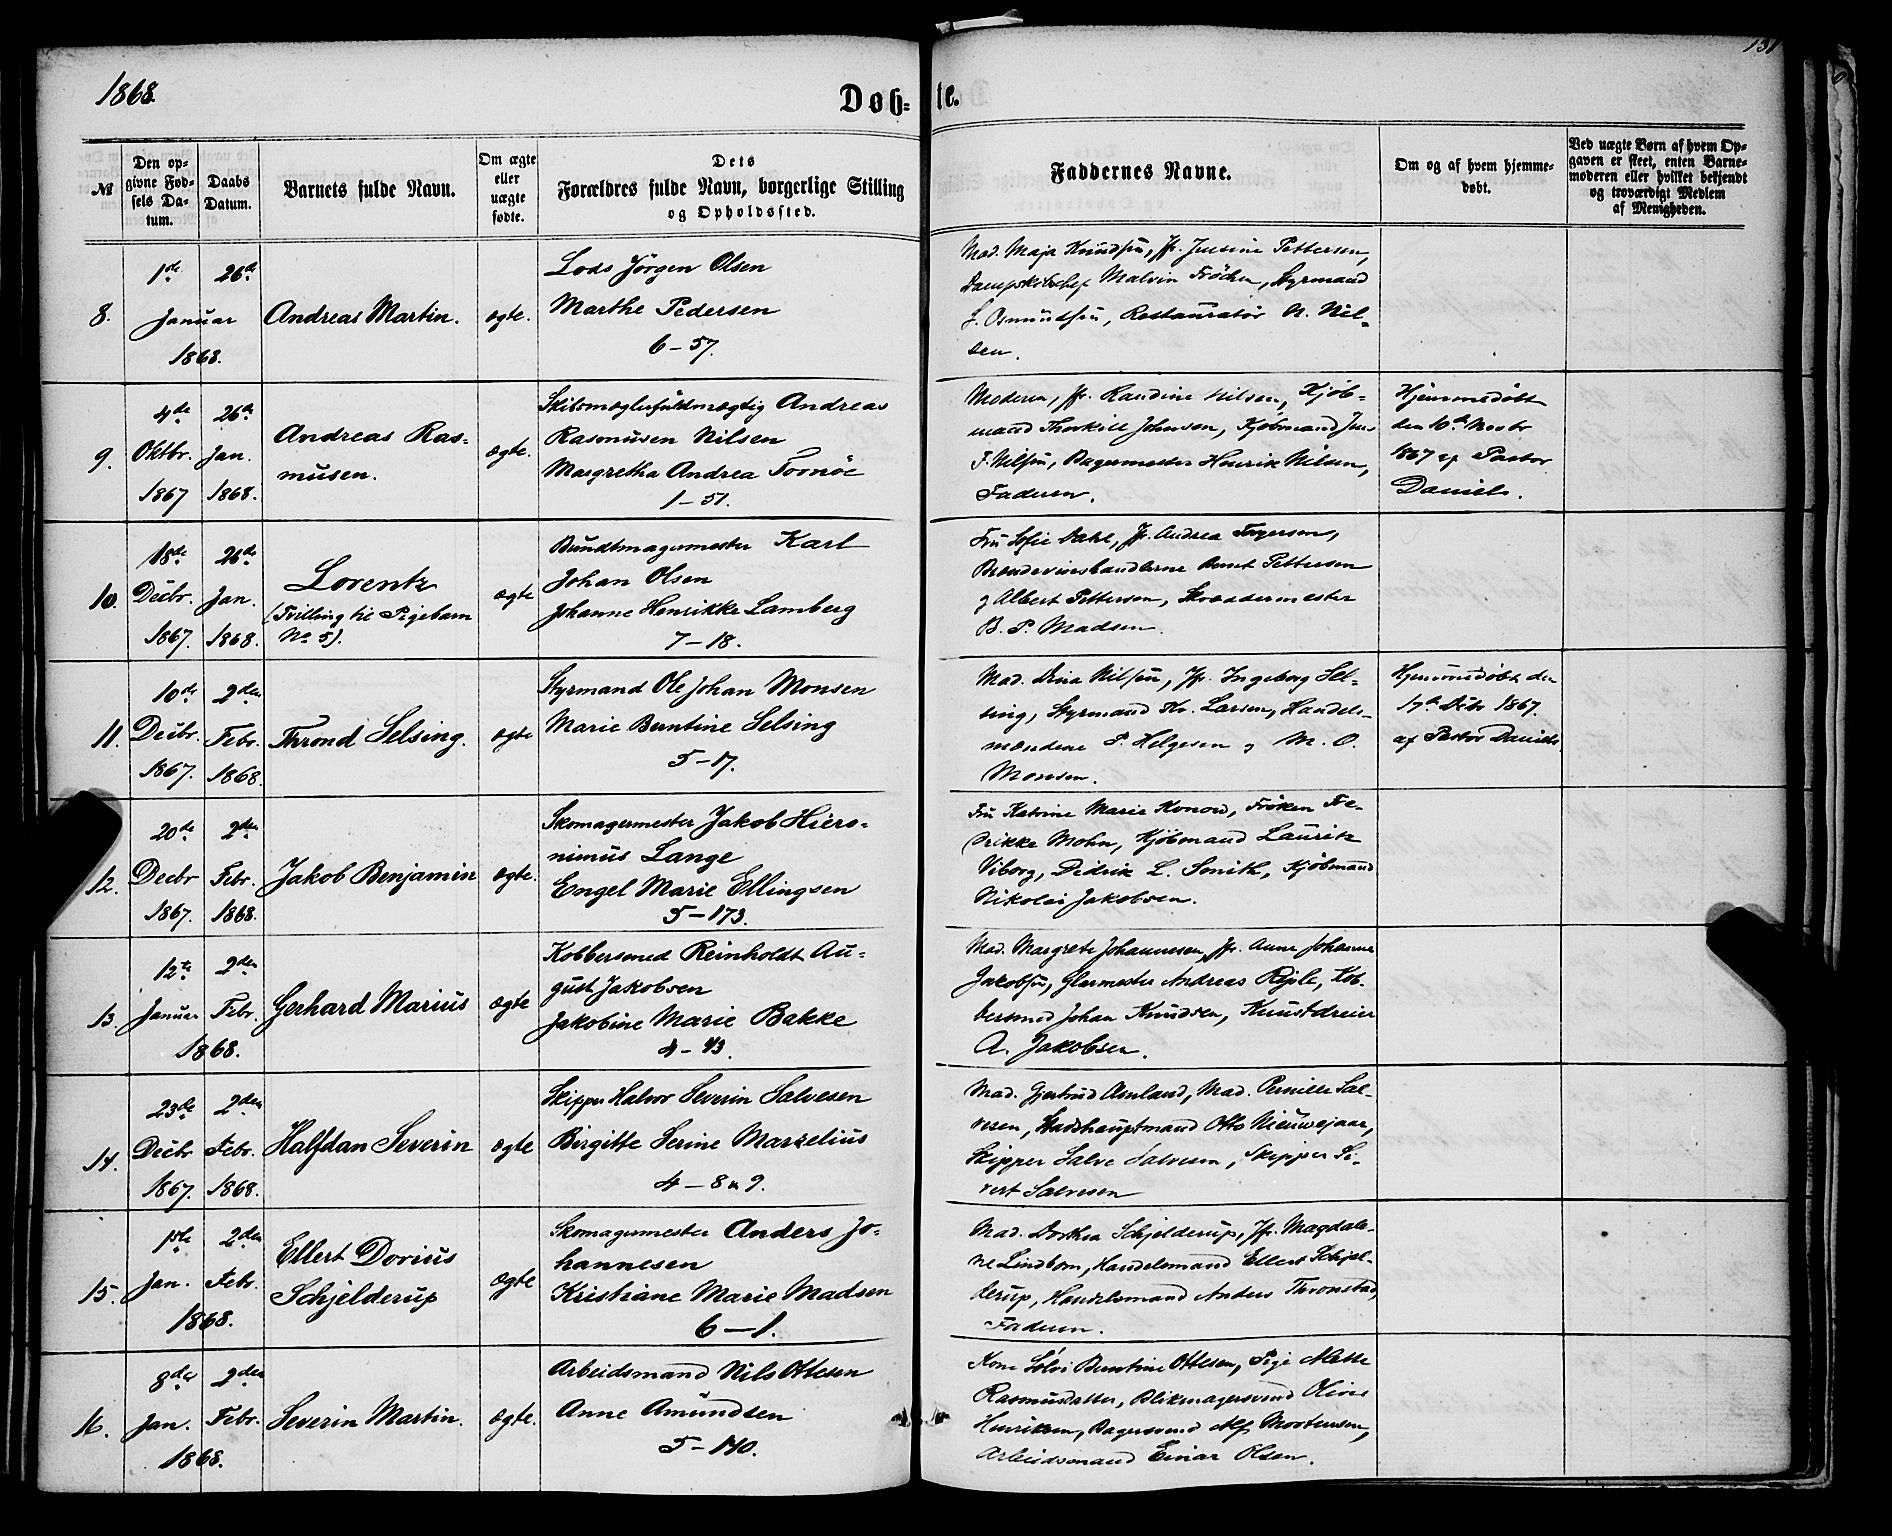 131
1868.
Døb-
te.
№
Den op-
givne Fød-
sels Da-
tum.
Daabs
Datum.
Barnets fulde Navn.
Om ægte
eller
uægte
fødte.
Dets
Forældres fulde Navn, borgerlige Stilling
og Opholdssted.
Faddernes Navne.
Om og af hvem hjemme-
døbt.
Ved uægte Børn af hvem Op-
gaven er skeet, enten Barne-
moderen eller hvilket bekjendt
og troværdigt Medlem
af Menigheden.
8.
1ste
Januar
1868.
26de
Andreas Martin.
ægte.
Lods Jörgen Olsen
Marthe Pedersen
6-57.
Mad. Maja Knudsen, Jfr. Justine Pettersen,
Malvin, Styrmand
Osmundsen, Restauratör N. Nil-
sen.
9.
4de
Oktbr.
1867
26de
Jan.
1868.
Andreas Ras-
musen.
ægte.
Skibsmæglerfuldmægtig Andreas
Rasmusen Nilsen
Margretha Andrea Tornöe
1-51.
Moderen, Jfr. Randine Nilsen, Kjöb-
mand Thorkill Johnsen, Kjöbmand Jens
F. Nilsen, Bagermester Henrik Nilsen,
Faderen.
Hjemmedöbt
den 10de Novbr
1867 af Pastor
Daniels.
10.
18de
Decbr.
1867.
26de
Jan.
1868.
Lorentz
(Tvilling til Pigebarn
No. 5).
ægte
Bundtmagermester Karl
Johan Olsen
Johanne Henrikke Lamberg
7-18.
Fru Sofie Dahl, Jfr. Andrea Torgersen,
Brændevinshandlerne Bernt Pettersen
og Albert Pettersen, Skræddermester
B. P. Madsen.
11.
10de
Decbr.
1867.
2den
Febr.
1868.
Thrond Selsing.
ægte
Styrmand Ole Johan Monsen
Marie Berntine Selsing
5-17.
Mad. Dina Nilsen, Jfr. Ingeborg Sel-
sing, Styrmand Kr. Larsen, Handels-
mændene P. Helgesen og M. O.
Monsen.
Hjemmedöbt den
17de Decbr 1867.
af Pastor Daniels
12.
20de
Decbr
1867.
2den
Febr.
1868.
Jakob Benjamin
ægte.
Skomagermester Jakob Hiero-
nimus Lange
Engel Marie Ellingsen
5-173.
Fru Katrine Marie Konow, Fröken Fre-
drikke Mohn, Kjöbmand Lauritz
Viborg, Didrik L. Smith, Kjöbmand
Nikolai Jakobsen.
13
12te
Januar
1868.
2den
Febr.
Gerhard Marius
ægte
Kobbersmed Reinholdt Au-
gust Jakobsen
Jakobine Marie Bakke
4-43.
Mad. Margrete Johannesen, Jfr. Anne Johanne
Jakobsen, Glarmester Andreas, Kob-
bersmed Johan Knudsen, Kunstdreier
A. Jakobsen.
14.
23de
Decbr
1867.
2den
Febr.
1868.
Halfdan Severin
ægte
Skipper Halvor Severin Salvesen
Birgitte Serine Marselius
4-8 & 9.
Mad. Gjertrud Amland, Mad. Pernille Sal-
vesen, Stadshauptmand Otto Nieuwejaar,
Skipper Salve Salvesen, Skipper Si-
vert Salvesen
15.
1ste
Jan.
1868.
2den
Febr.
Ellert Dorius
Schjelderup
ægte
Skomagermester Anders Jo-
hannesen
Kristiane Marie Madsen
6-1.
Mad. Dorthea Schjelderup, Jfr. Magdale-
ne Lindbom, Handelsmand Ellert Schjel-
derup, Handelsmand Anders Thronstad,
Faderen.
16.
8de
Jan.
1868.
2den
Febr.
Severin Martin.
ægte.
Arbeidsmand Nils Ottesen
Anne Amundsen
5-140.
Kone Sölvi Berntine Ottesen, Pige Mette
Rasmusdatter, Blikmagersvend Oliver
Henriksen, Bagersvend Alf Mortensen,
Arbeidsmand Einar Olsen.